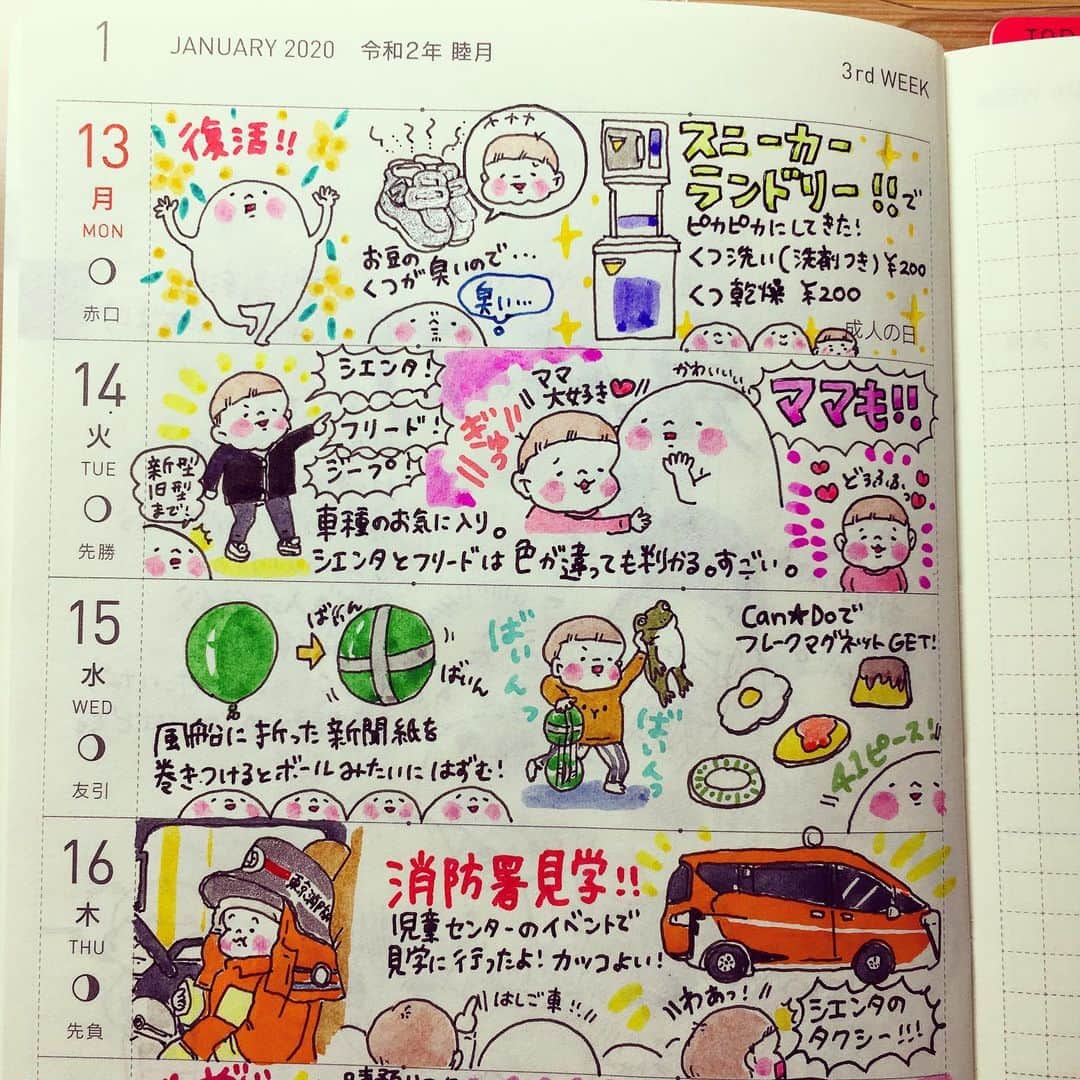 1 JANUARY 2020 令和2年 睦月
3rd WEEK
TOD
13
月
MON
赤口
復活!!
ホカホカ
お豆の
くつが臭いので・・・
臭い・・・
スニーカー
ランドリー!!で
ピカピカにしてきた!
くつ洗い(洗剤つき)¥200
くつ乾燥 ¥200
成人の日
14
火
TUE
先勝
新型
旧型
まで!
シエンタ!
フリード!
ジープ!
車種のお気に入り。
シエンタとフリードは色が違っても判かる。すごい。
ぎゅっ
ママ
大好き
かわいいぃ
ママも!!
どぅふふふっ
15
水
WED
友引
ばいん
ばいん
風船に折った新聞紙を
巻きつけるとボールみたいにはずむ!
ばいんっ
ばいんっ
Can★Doで
フレークマグネットGET!
41ピース!
16
木
THU
先負
東京消防庁
消防署見学!!
児童センターのイベントで
見学に行ったよ!カッコよい!
はしご車!!
わあっ!
シエンタの
タクシー!!!